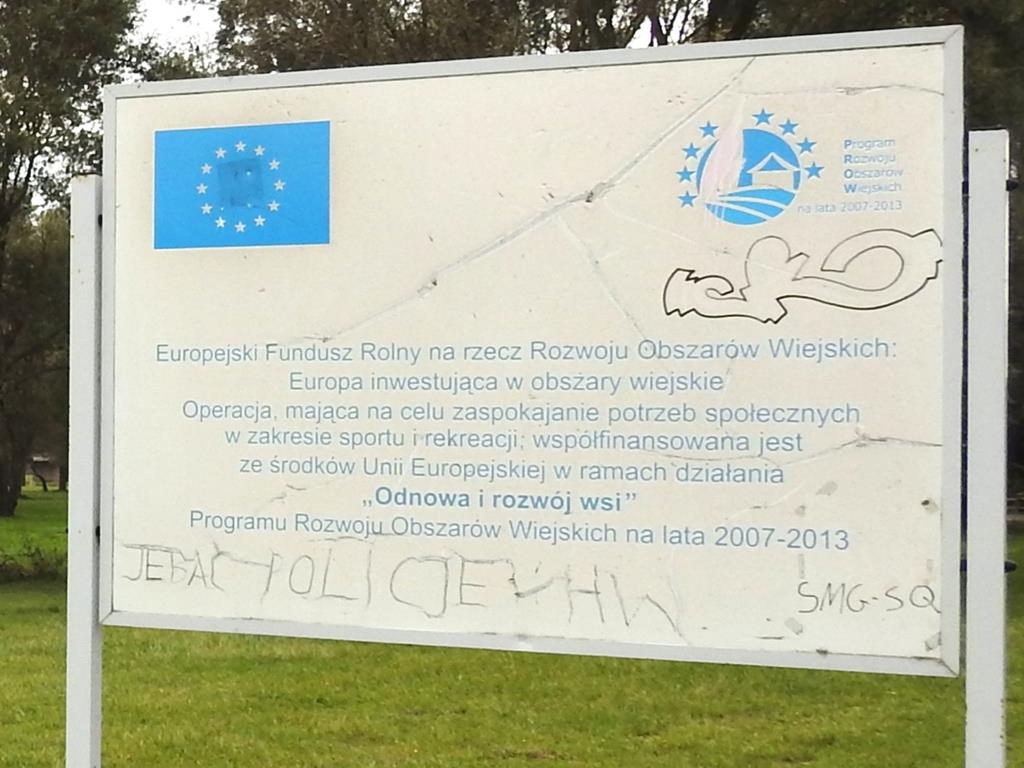 Program
Rozwoju
Obszarów
Wiejskich
na lata 2007-2013
Europejski Fundusz Rolny na rzecz Rozwoju Obszarów Wiejskich:
Europa inwestująca w obszary wiejskie
Operacja, mająca na celu zaspokajanie potrzeb społecznych
w zakresie sportu i rekreacji, współfinansowana jest
ze środków Unii Europejskiej w ramach działania
„Odnowa i rozwój wsi”
Programu Rozwoju Obszarów Wiejskich na lata 2007-2013
JEBAĆ POLICJE
SMG-SQ